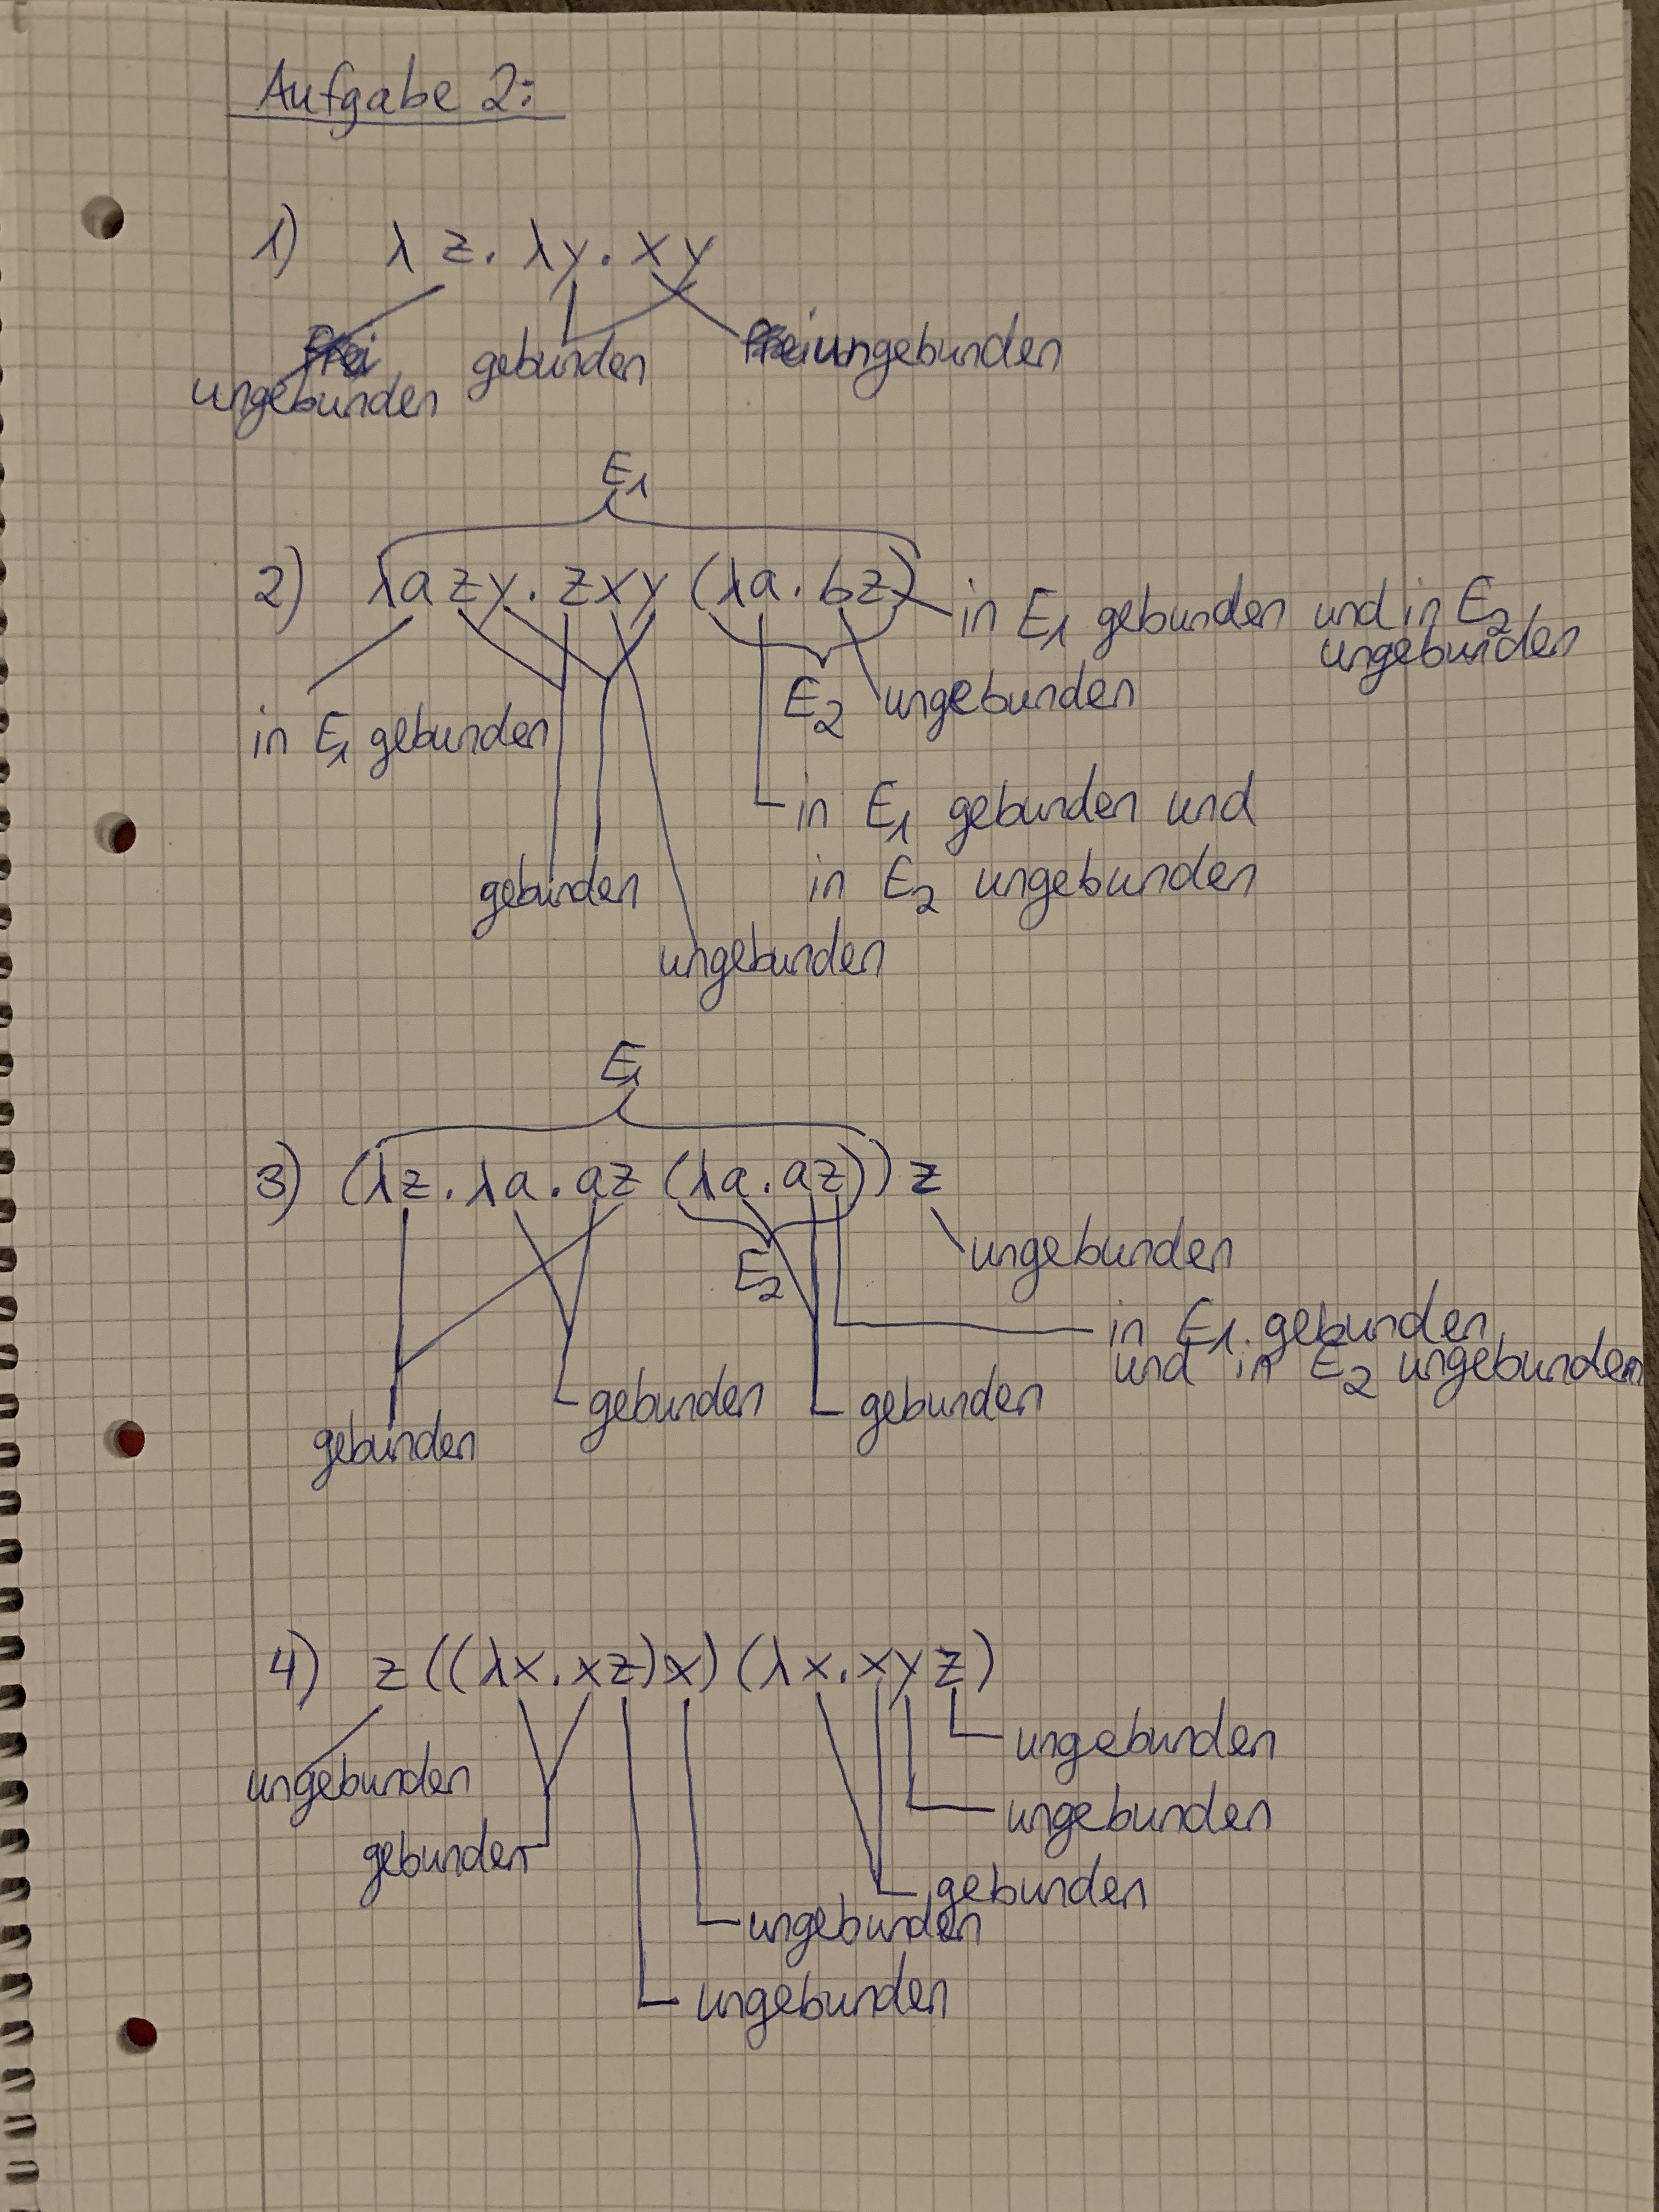 Aufgabe 2:
1) λ z. λy. xy
ungebunden gebunden ungebunden
E1
2) λa zy. zxy (λa. bz)
in E1 gebunden und in E2
ungebunden
E2 ungebunden
in E1 gebunden
in E1 gebunden und
gebunden in E2 ungebunden
ungebunden
E1
3) (λz. λa. az (λa. az)) z
ungebunden
E2
in E1 gebunden
und in E2 ungebunden
gebunden gebunden
gebunden
4) z((λx.xz)x)(λx.xyz)
ungebunden
ungebunden
ungebunden
gebunden
gebunden
ungebunden
ungebunden